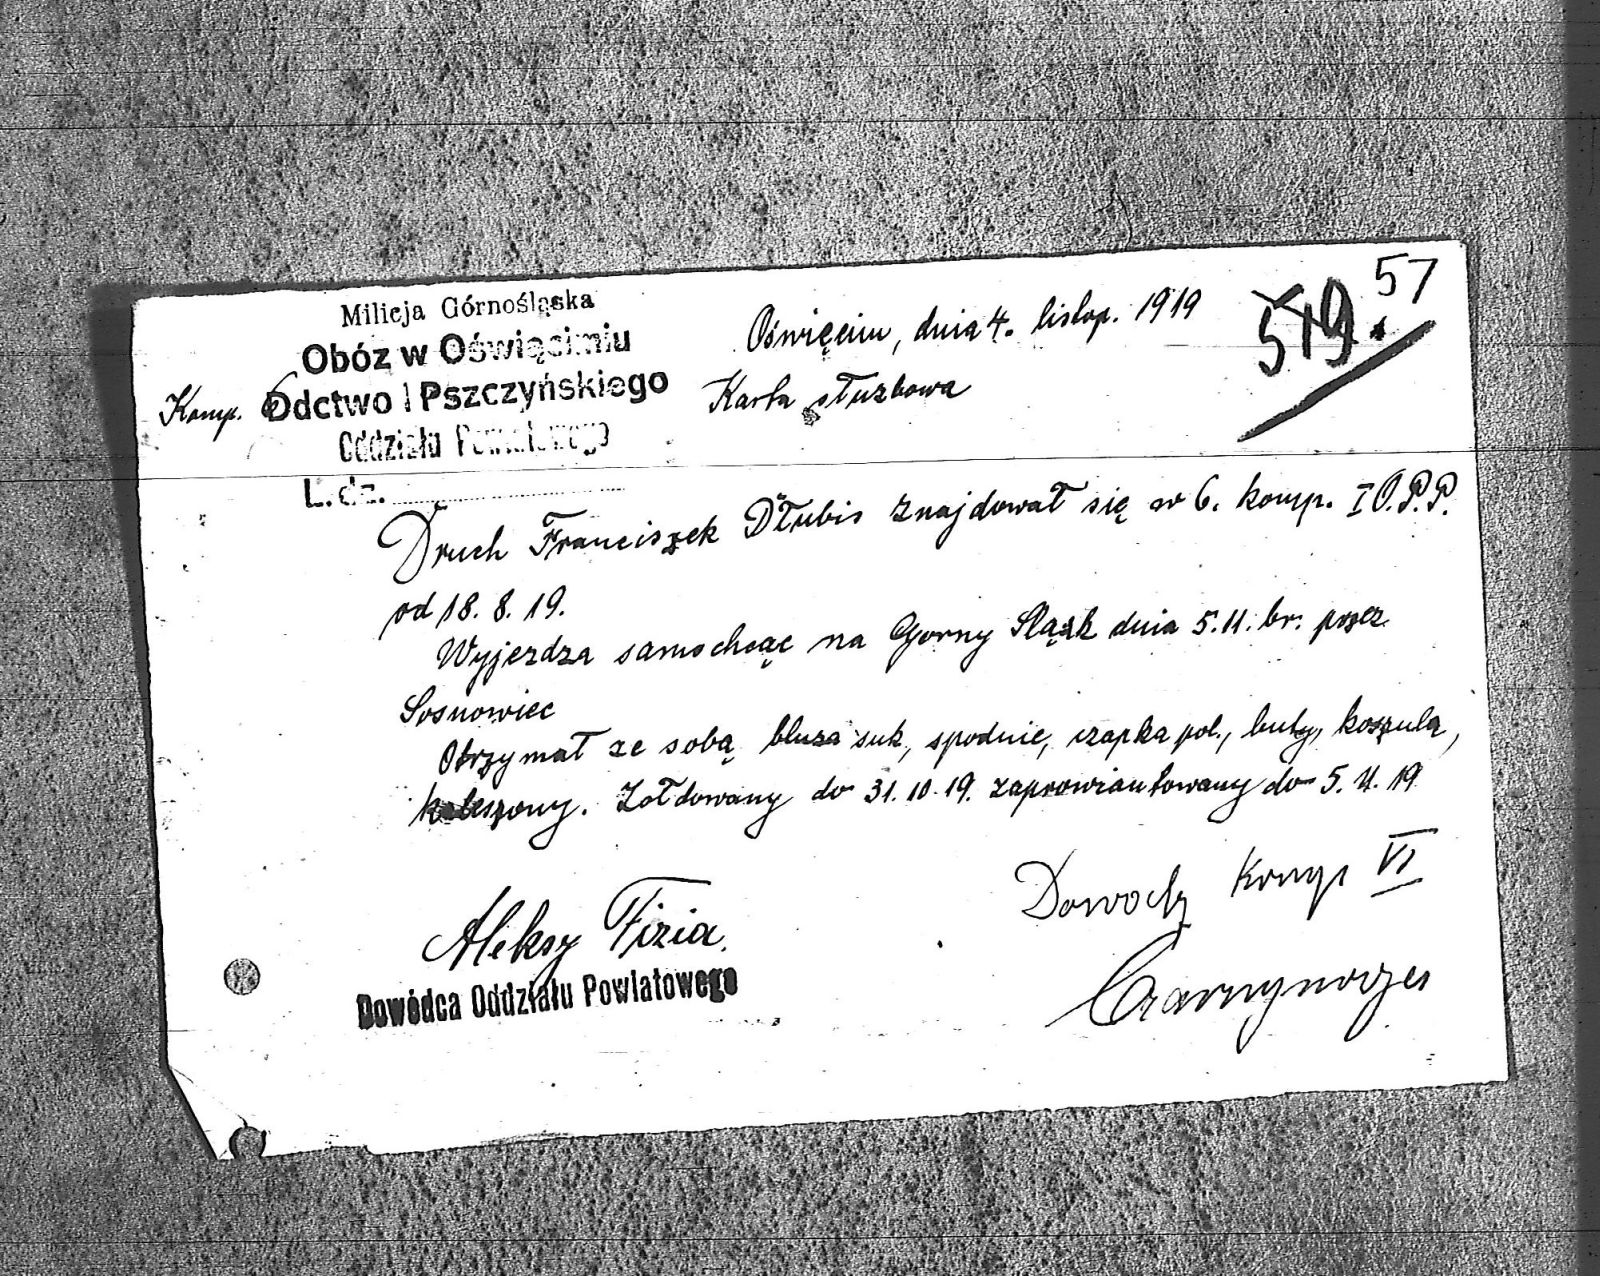 57
519.
Milicja Górnośląska
Obóz w Oświęcimiu
Komp. 6 Odctwo I Pszczyńskiego
Oddziału Powiatowego
L. dz.
Oświęcim, dnia 4. listop. 1919
Karta służbowa
Druch Franciszek Dłubis znajdował się w 6. komp. I O.P.P.
od 18. 8. 19.
Wyjezdza samochcąc na Gorny Sląsk dnia 5.11. br. przez
Sosnowiec
Otrzymał ze sobą bluza suk, spodnie, czapka pol., buty, koszula,
kaleszony. Żołdowany do 31. 10. 19. zaprowiantowany do 5. 11. 19
Aleksy Fizia.
Dowódca Oddziału Powiatowego
Dowodz Komp VI